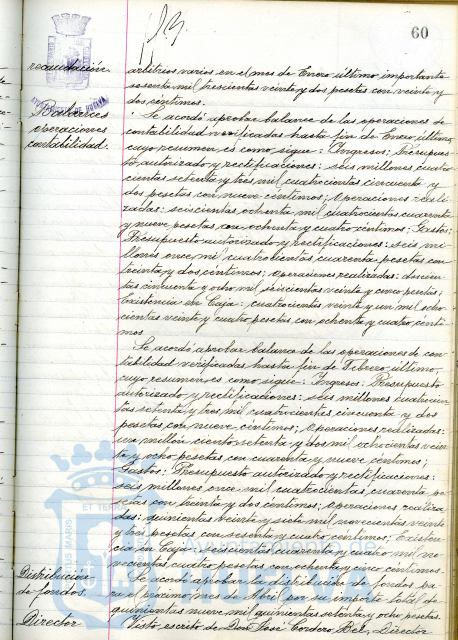 60
recaudación
arbitrios varios en el mes de Enero último, importante
sesenta mil trescientas veinte y dos pesetas con veinte y
dos céntimos.
AYUNTAMIENTO DE HUELVA
Balances
operaciones
contabilidad.
Se acordó aprobar balance de las operaciones de
contabilidad verificadas hasta fin de Enero último,
cuyo resumen es como sigue: Ingresos: Presupues-
to autorizado y rectificaciones: seis millones cuatro-
cientas setenta y tres mil cuatrocientas cincuenta y
dos pesetas con nueve céntimos; Operaciones reali-
zadas: seiscientas ochenta mil cuatrocientas cuarenta
y nueve pesetas con ochenta y cuatro céntimos; Gastos:
Presupuesto autorizado y rectificaciones: seis mi-
llones once mil cuatrocientas cuarenta pesetas con
treinta y dos céntimos; operaciones realizadas: doscien-
tas cincuenta y ocho mil seiscientas veinte y cinco pesetas;
Existencia en Caja: cuatrocientas veinte y un mil ocho-
cientas veinte y cuatro pesetas con ochenta y cuatro cénti-
mos.
Se acordó aprobar balance de las operaciones de con-
tabilidad verificadas hasta fin de Febrero último,
cuyo resumen es como sigue: Ingresos: Presupuesto
autorizado y rectificaciones: seis millones cuatrocien-
tas setenta y tres mil cuatrocientas cincuenta y dos
pesetas con nueve céntimos; Operaciones realizadas:
un millón ciento setenta y dos mil ochocientas vein-
te y ocho pesetas con cuarenta y nueve céntimos;
Gastos: Presupuesto autorizado y rectificaciones:
seis millones once mil cuatrocientas cuarenta pe-
setas con treinta y dos céntimos; operaciones realiza-
das: quinientas veinte y siete mil novecientas veinte
y tres pesetas con sesenta y cuatro céntimos; Existen-
cia en Caja: seiscientas cuarenta y cuatro mil no-
vecientas cuatro pesetas con ochenta y cinco céntimos.
Distribución
de fondos.
Se acordó aprobar la distribución de fondos pa-
ra el próximo mes de Abril por su importe total de
quinientas nueve mil quinientas setenta y ocho pesetas.
Director
Visto escrito de Don José Cordero Bel, Director